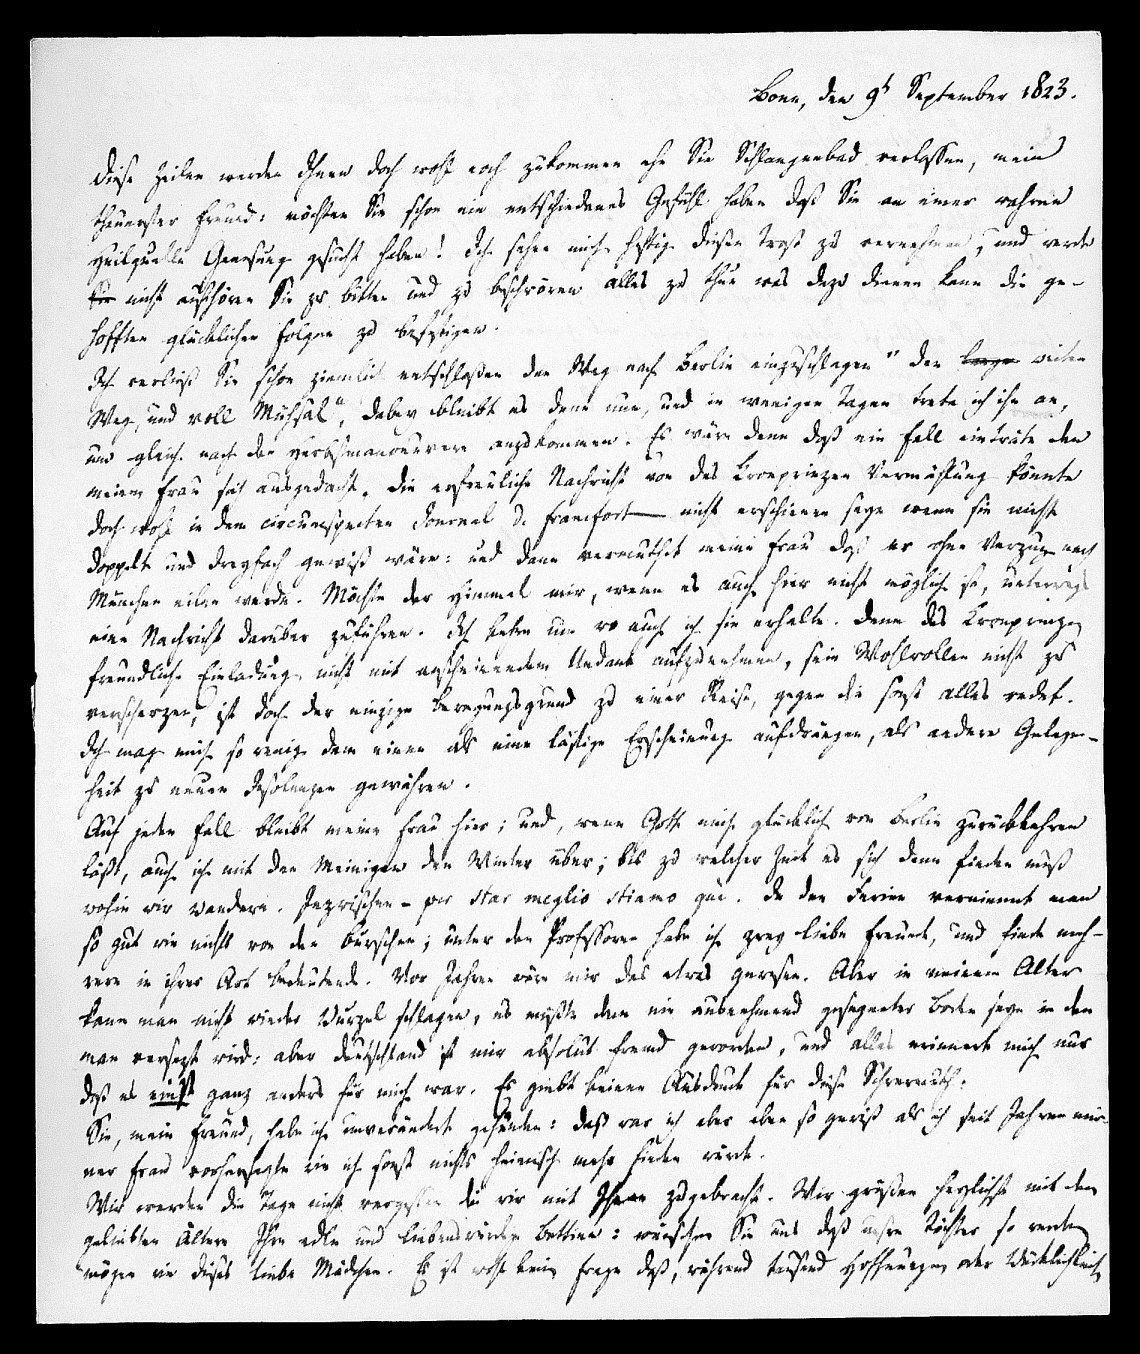 Bonn, den 9t September 1823.
Diese Zeilen werden Ihnen doch wohl noch zukommen ehe Sie Schlangenbad verlassen, mein
theuerster Freund: möchten Sie schon ein entschiedenes Gefühl haben daß Sie an einer wahren
Heilquelle Genesung gesucht haben! Ich sehne mich heftig diesen Trost zu vernehmen, und werde
Sie nicht aufhören Sie zu bitten und zu beschwören alles zu thun was dazu dienen kann die ge-
hofften glücklichen Folgen zu befestigen.
Ich verließ Sie schon ziemlich entschlossen den Weg nach Berlin einzuschlagen " den weiten
Weg, und voll Mühsal", dabey bleibt es denn nun, und in wenigen Tagen trete ich ihn an,
um gleich nach den Herbstmanoeuvern anzukommen. Es wäre denn daß ein Fall einträte den
meine Frau sich ausgedacht. Die erfreuliche Nachricht von des Kronprinzen Vermählung könnte
doch wohl in dem circumspecten Journal de Francfort nicht erschienen seyn wenn sie nicht
doppelt und dreyfach gewiß wäre: und dann vermuthet meine Frau daß er ohne Verzug nach
München eilen werde. Möchte der Himmel mir, wenn es auch hier nicht möglich ist, unterwegs
eine Nachricht darüber zuführen. Ich kehre um wo auch ich sie erhalte. Denn des Kronprinzen
freundliche Einladung nicht mit anscheinendem Undank aufzunehmen, sein Wohlwollen nicht zu
verscherzen, ist doch der einzige Bewegungsgrund zu einer Reise, gegen die sonst alles redet.
Ich mag mich so wenig dem einen als eine lästige Erscheinung aufdringen, als andern Gelegen-
heit zu neuen Insolenzen gewähren.
Auf jeden Fall bleibt meine Frau hier; und, wenn Gott mich glücklich von Berlin zurückkehren
läßt, auch ich mit den Meinigen den Winter über; bis zu welcher Zeit es sich denn finden muß
wohin wir wandern. Inzwischen – per star meglio stiamo qui. In den Ferien vernimmt man
so gut wie nichts von den Burschen; unter den Professoren habe ich zwey liebe Freunde, und finde meh-
rere in ihrer Art bedeutende. Vor Jahren wäre mir das etwas gewesen. Aber in meinem Alter
kann man nicht wieder Wurzel schlagen, es müßte denn ein ausnehmend geeigneter Boden seyn in den
man versetzt wird: aber Deutschland ist mir absolut fremd geworden, und alles erinnert mich nur
daß es einst ganz anders für mich war. Es giebt keinen Ausdruck für diese Schwermuth.
Sie, mein Freund, habe ich unverändert gefunden: daß war ich aber eben so gewiß als ich seit Jahren mei-
ner Frau vorhersagte wie ich sonst nichts heimisch mehr finden würde.
Wir werden die Tage nicht vergessen die wir mit Ihnen zugebracht. Wir grüßen herzlichst mit den
geliebten Ältern Ihre edle und liebenswürdige Bettina: wünschen Sie uns daß unsre Töchter so werden
mögen wie dieses liebe Mädchen. Es ist wohl keine Frage daß, während tausend Hoffnungen oder